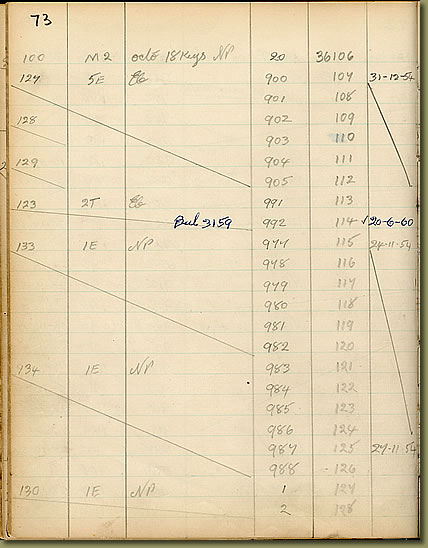 73
100 M2 octo 18 Keys NP 20 36106
127 5E Eb 900 107 31-12-54
901 108
128 902 109
903 110
129 904 111
905 112
123 2T Eb 991 113
Bul 3159 992 114 ✓20-6-60
133 1E NP 977 115 24-11-54
978 116
979 117
980 118
981 119
982 120
134 1E NP 983 121
984 122
985 123
986 124
987 125 27-11-54
988 126
130 1E NP 1 127
2 128